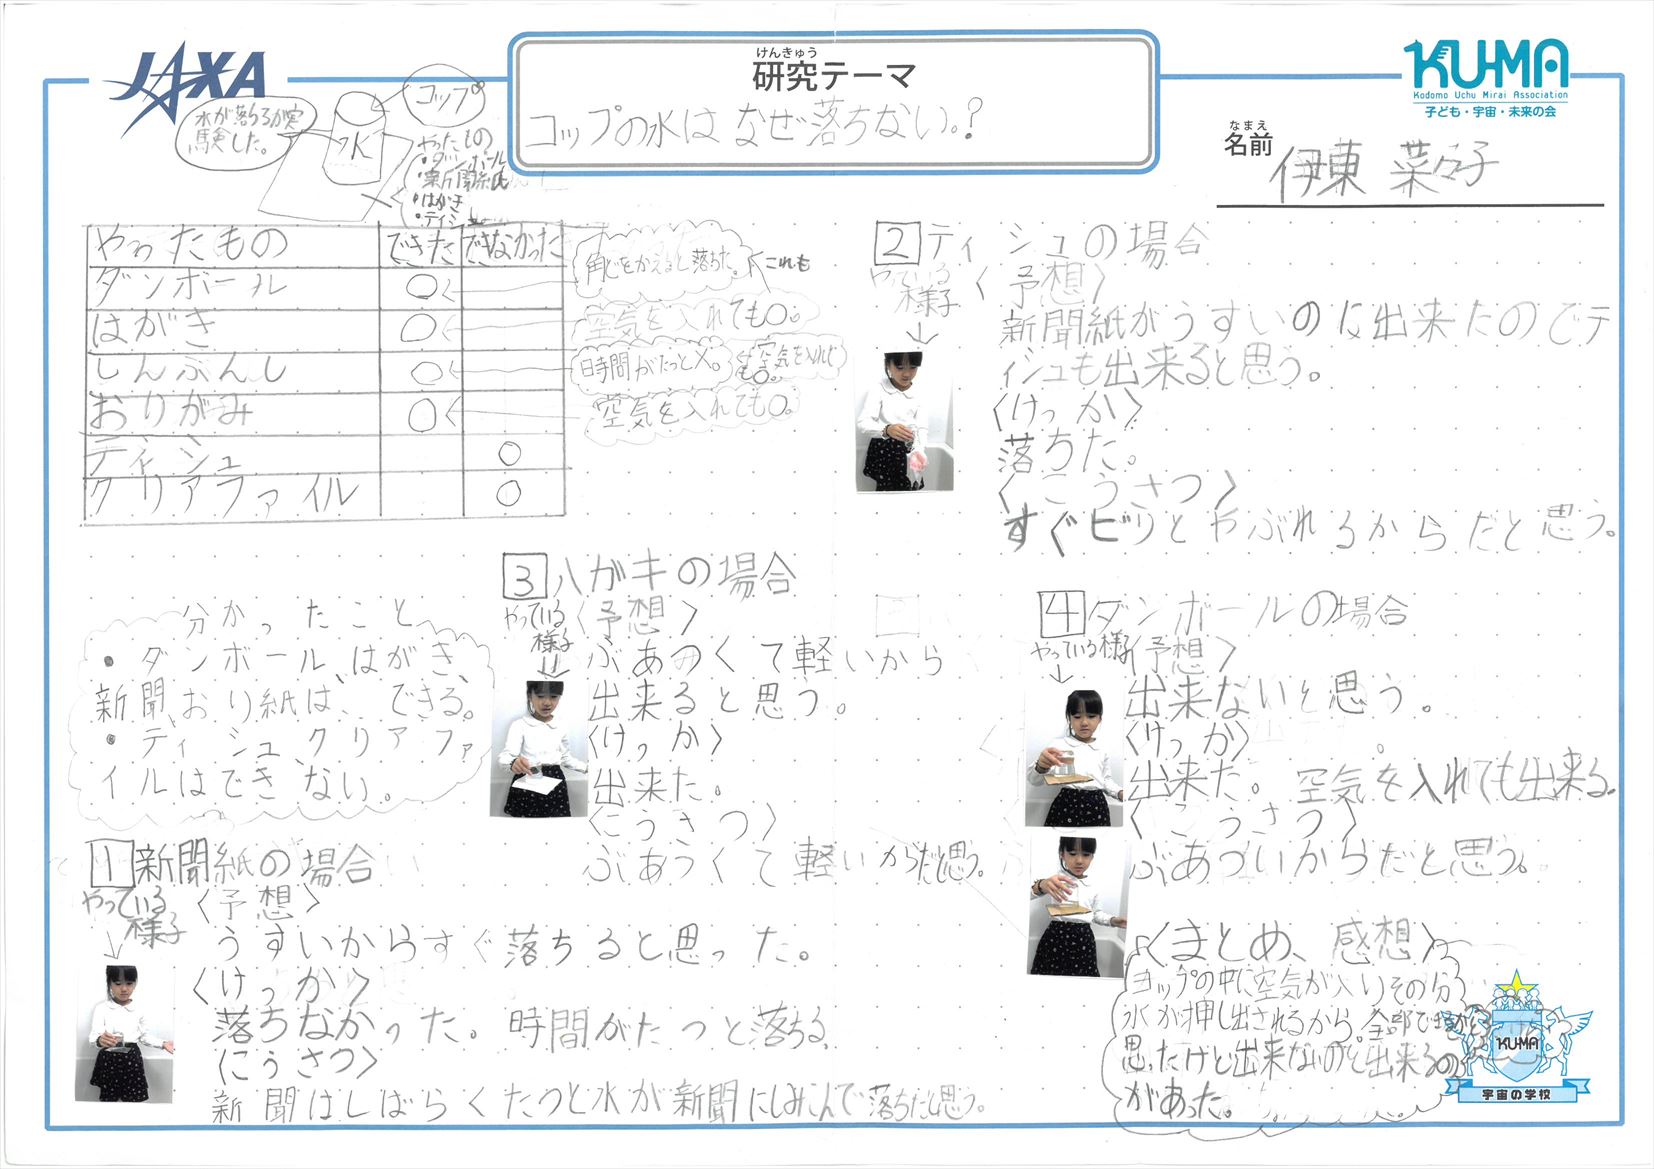 JAXA
けんきゅう
研究テーマ
コップの水はなぜ落ちない。?
KU-MA
Kodomo Uchu Mirai Association
子ども・宇宙・未来の会
なまえ
名前
伊東 菜々子
水が落ちるか実
験した。
コップ
水
やったもの
・ダンボール
・新聞紙
・はがき
・ティシュ
やったもの できた できなかった
ダンボール ○
はがき ○
しんぶんし ○
おりがみ ○
ティシュ ○
クリアファイル ○
角どをかえると落ちた。
これも
空気を入れても○。
時間がたっと×。
空気を入れても○。
空気を入れても○。
分かったこと
・ダンボール、はがき、
新聞、おり紙は、できる。
・ティシュ、クリアファ
イルはできない。
1 新聞紙の場合
やっている
様子
〈予想〉
うすいからすぐ落ちると思った。
〈けっか〉
落ちなかった。時間がたつと落ちる
〈こうさつ〉
新聞はしばらくたつと水が新聞にしみこんで落ちだと思う。
2 ティシュの場合
やっている
様子
〈予想〉
新聞紙がうすいのに出来たのでテ
ィシュも出来ると思う。
〈けっか〉
落ちた。
〈こうさつ〉
すぐビリとやぶれるからだと思う。
3 ハガキの場合
やっている
様子
〈予想〉
ぶあつくて軽いから
出来ると思う。
〈けっか〉
出来た。
〈こうさつ〉
ぶあつくて軽いからだと思う。
4 ダンボールの場合
やっている様子
〈予想〉
出来ないと思う。
〈けっか〉
出来た。空気を入れても出来る。
〈こうさつ〉
ぶあづいからだと思う。
〈まとめ、感想〉
コップの中に空気が入りその分
水が押し出されるから。全部で
思ったけど出来ないのと出来るの
があった。
KU-MA
宇宙の学校